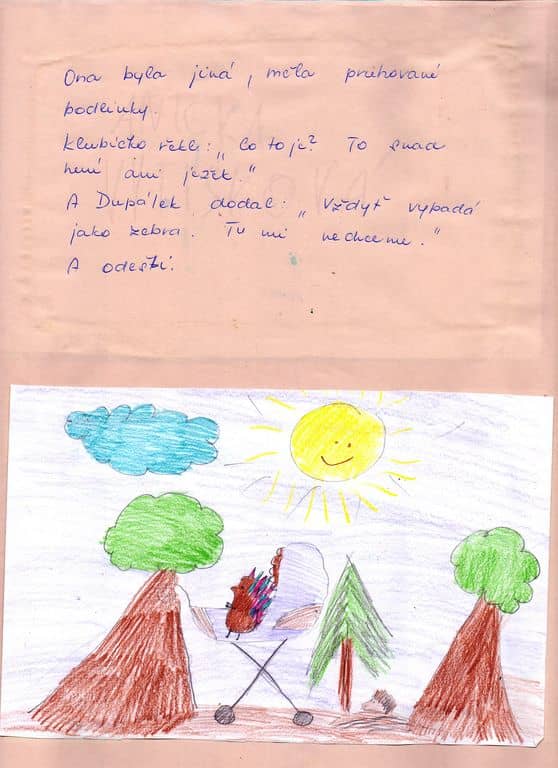 Ona byla jiná, měla pruhované
bodlinky.
Klubíčko řekl: „Co to je? To snad
není ani ježek."
A Dupálek dodal: „Vždyť vypadá
jako zebra. Tu mi nechceme."
A odešli.